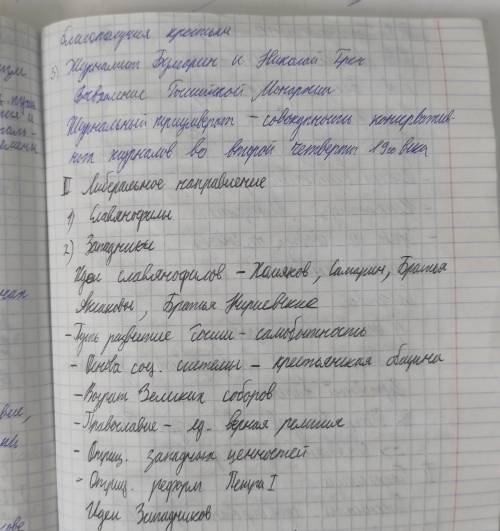 благополучия крестьян
5) Журналист Булгарин и Николай Греч
Восхваление Российской Монархии
Журнальный триумвират – совокупность консерватив-
ных журналов во второй четверти 19го века
II Либеральное направление
1) Славянофилы
2) Западники
Идеи славянофилов – Хомяков, Самарин, Братья
Аксаковы, Братья Киреевские
- Путь развитие России – самобытность
- Основа соц. системы – крестьянская община
- Возрат Земских соборов
- Православие – ед. верная религия
- Отриц. западных ценностей
- Отриц. реформ Петра I
Идеи Западников